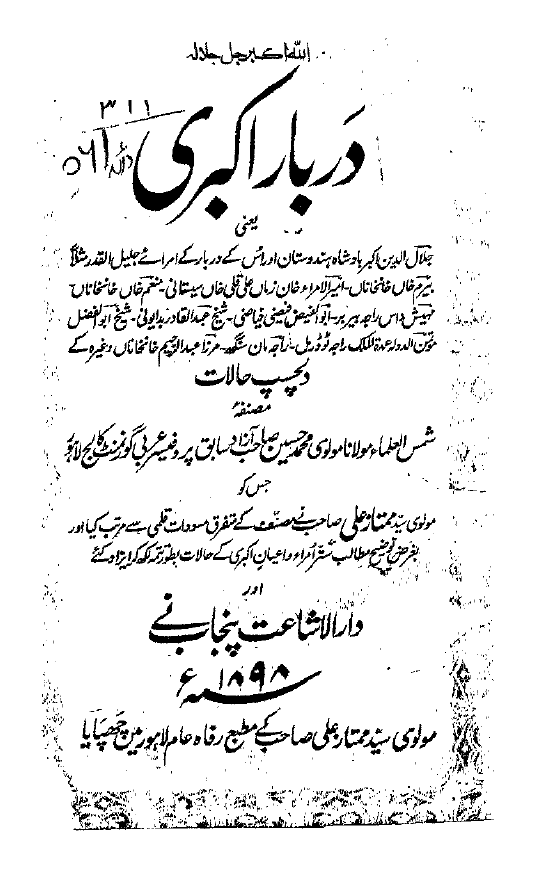 اللہ اکبر جل جلالہ
۳۱۱
دربار اکبری
یعنی
جلال الدین اکبر بادشاہ ہندوستان اور اُس کے دربار کے امرائے جلیل القدر مثلاً
بیرم خاں خانخاناں۔ امیر الامراء خان زماں علی قلی خاں سیستانی۔ منعم خاں خانخاناں
مہیش داس راجہ بیربر۔ ابو الفیض فیضی فیاضی۔ شیخ عبد القادر بدایونی۔ شیخ ابو الفضل
موتمن الدولہ عمدۃ الملک راجہ ٹوڈرمل۔ راجہ مان سنگھ۔ مرزا عبد الرحیم خانخاناں وغیرہ کے
دلچسپ حالات
مصنفہ
شمس العلماء مولانا مولوی محمد حسین صاحب آزاد سابق پروفیسر عربی گورنمنٹ کالج لاہور
جس کو
مولوی سید ممتاز علی صاحب نے مصنف کے متفرق مسودات قلمی سے مرتب کیا اور
بغرض توضیح مطالب ستر اُمراء و اعیانِ اکبری کے حالات بطور تتمہ لکھ کر ایزاد کئے
اور
دار الاشاعت پنجاب نے
سنہ ۱۸۹۸ء
مولوی سید ممتاز علی صاحب کے مطبع رفاہ عام لاہور میں چھپایا